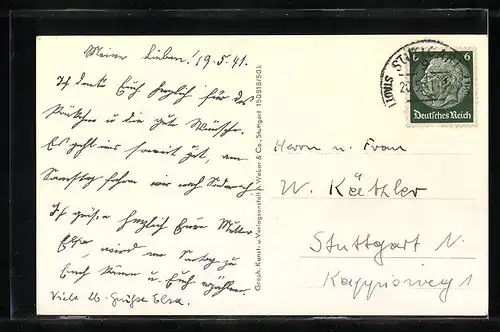 Meine Lieben! 19.5.41.
Ich danke Euch herzlich für das
Päckchen u die guten Wünsche.
Es geht uns soweit gut, am
Samstag fahren wir nach
Ich grüße herzlich Eure Mutter
Elsa wird am Sonntag zu
Euch kommen u Euch erzählen.
Viele lb. Grüße Elsa.
Graph. Kunst- u. Verlagsanstalt A. Weber & Co., Stuttgart 150818/50 k
6 6
Deutsches Reich
Herrn u. Frau
W.
Stuttgart N.
Kappisweg 1